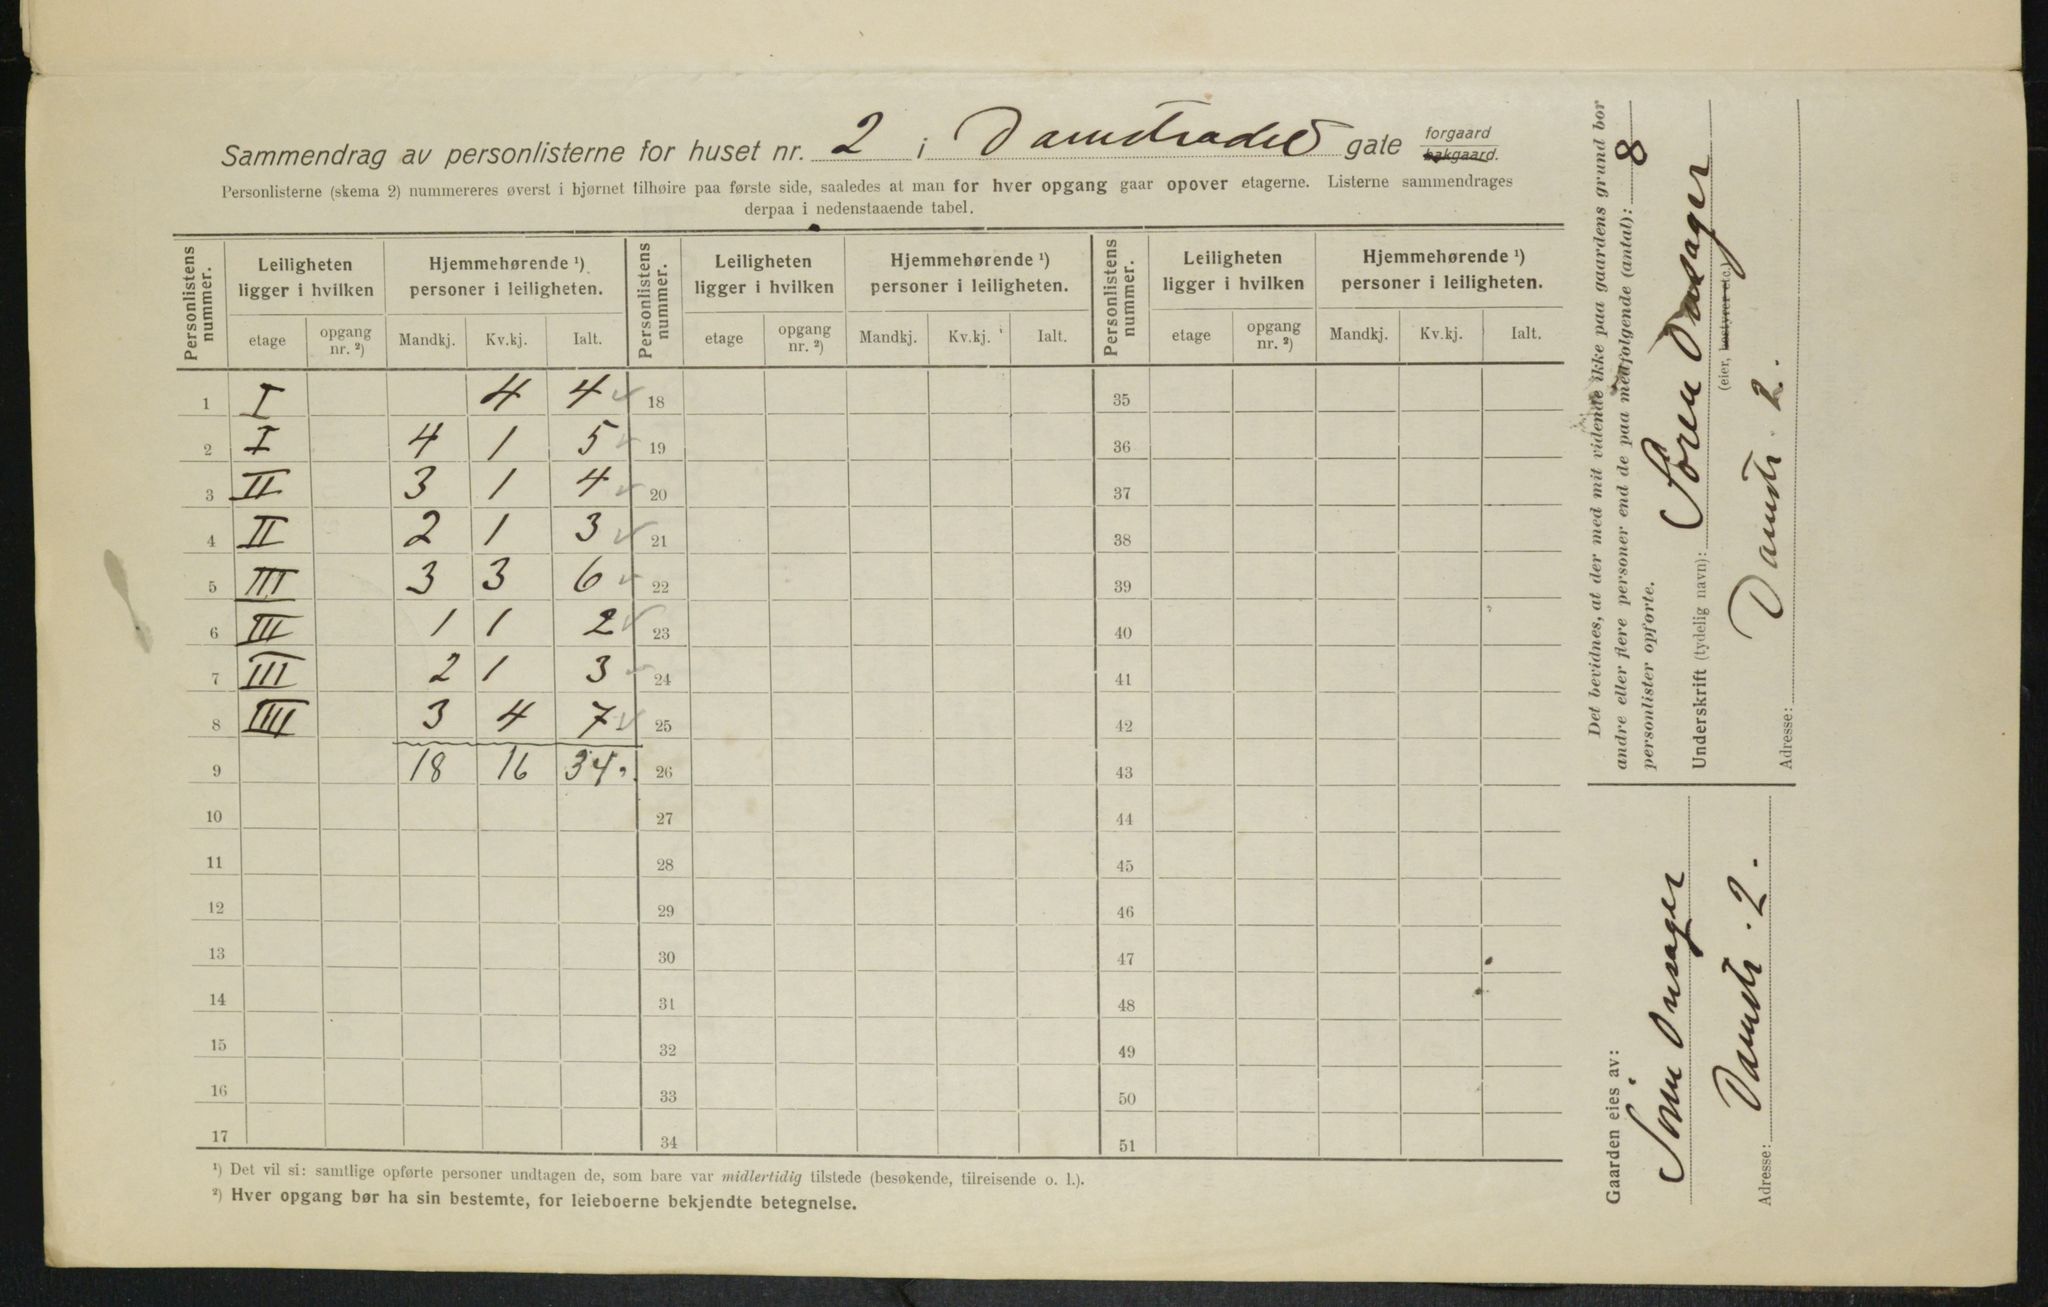 Sammendrag av personlisterne for huset nr. 2 i Damstrædet gate forgaard bakgaard.
Personlisterne (skema 2) nummereres øverst i hjørnet tilhøire paa første side, saaledes at man for hver opgang gaar opover etagerne. Listerne sammendrages
derpaa i nedenstaaende tabel.
Personlistens nummer. Leiligheten ligger i hvilken Hjemmehørende ¹) personer i leiligheten. Personlistens nummer. Leiligheten ligger i hvilken Hjemmehørende ¹) personer i leiligheten. Personlistens nummer. Leiligheten ligger i hvilken Hjemmehørende ¹) personer i leiligheten.
etage opgang nr. ²) Mandkj. Kv.kj. Ialt. etage opgang nr. ²) Mandkj. Kv.kj. Ialt. etage opgang nr. ²) Mandkj. Kv.kj. Ialt.
1 I 4 4 18 35
2 I 4 1 5 19 36
3 II 3 1 4 20 37
4 II 2 1 3 21 38
5 III 3 3 6 22 39
6 III 1 1 2 23 40
7 III 2 1 3 24 41
8 IIII 3 4 7 25 42
9 18 16 34. 26 43
10 27 44
11 28 45
12 29 46
13 30 47
14 31 48
15 32 49
16 33 50
17 34 51
¹) Det vil si: samtlige opførte personer undtagen de, som bare var midlertidig tilstede (besøkende, tilreisende o. l.).
²) Hver opgang bør ha sin bestemte, for leieboerne bekjendte betegnelse.
Det bevidnes, at der med mit vidende ikke paa gaardens grund bor
andre eller flere personer end de paa medfølgende (antal): 8
personlister opførte.
Underskrift (tydelig navn): Søren Onsager
(eier, bestyrer etc.)
Adresse: Damstr. 2.
Gaarden eies av:
Søren Onsager
Adresse: Damstr. 2.